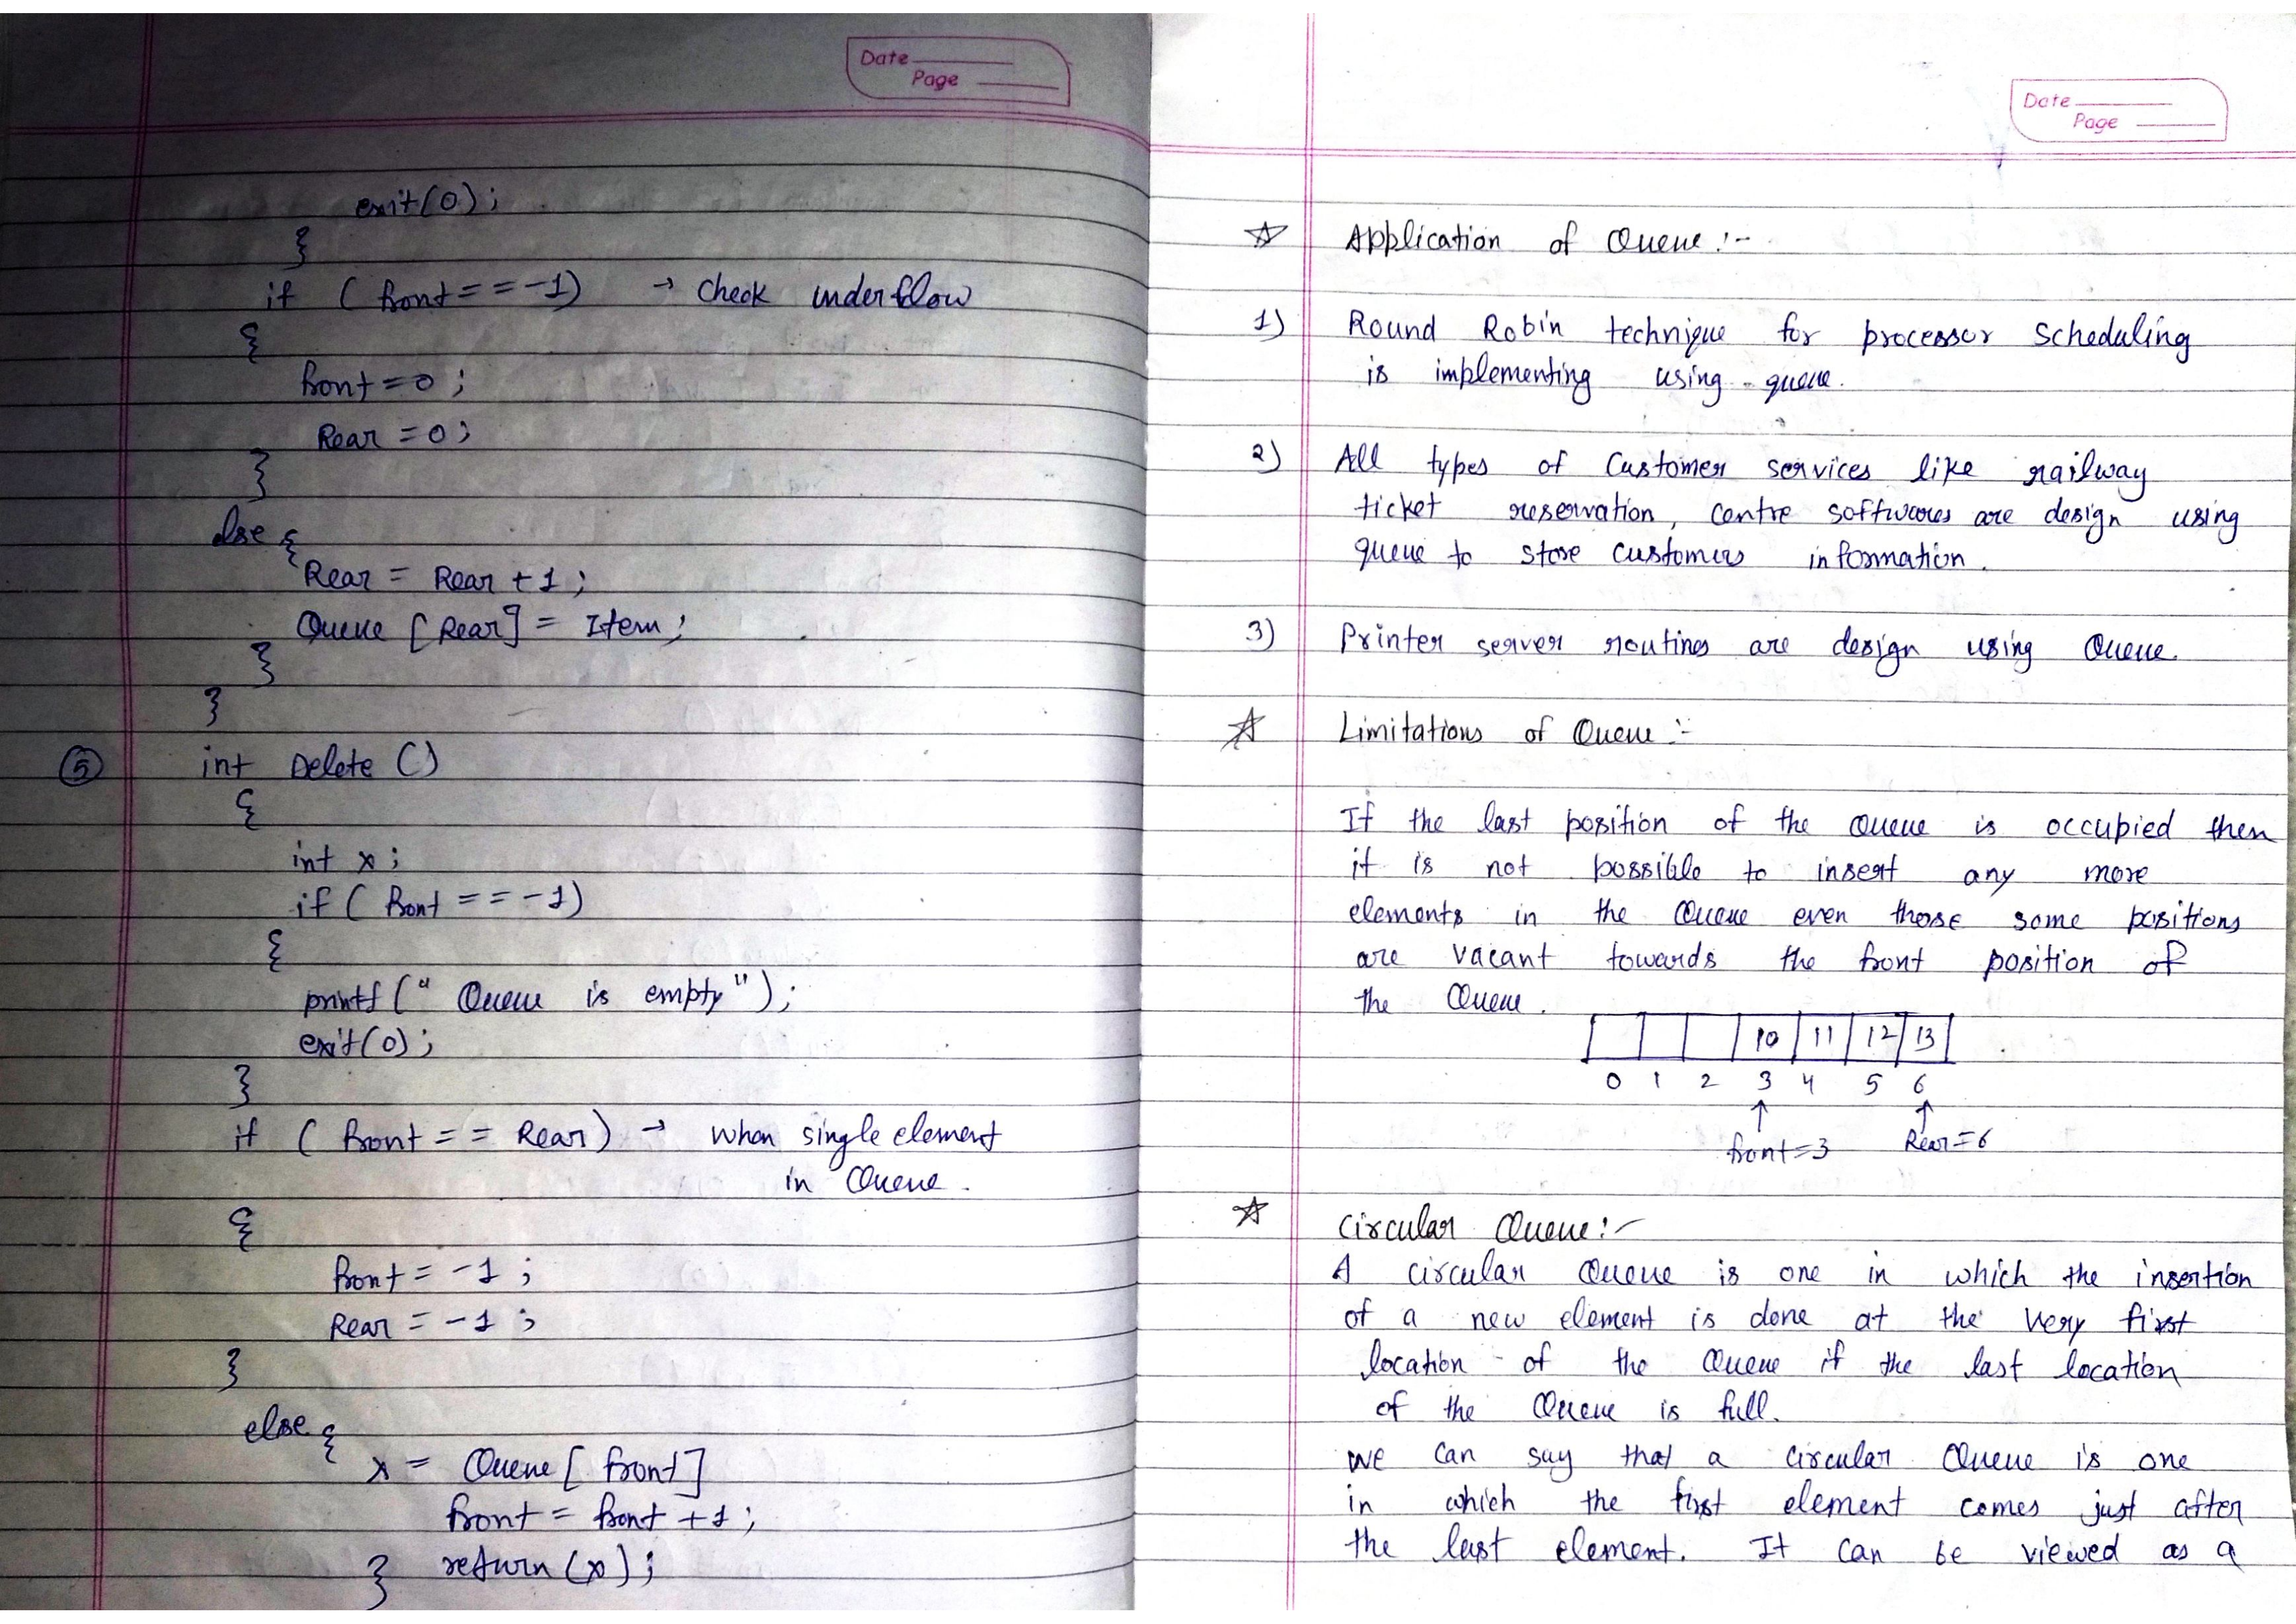 Date
Page
exit(0);
}
if (front == -1) → check underflow
{
front = 0;
Rear = 0;
}
else {
Rear = Rear + 1;
Queue [Rear] = Item;
}
}
⑤ int Delete ()
{
int x;
if (front == -1)
{
printf (" Queue is empty");
exit(0);
}
if (front == Rear) → when single element
in Queue.
{
front = -1;
Rear = -1;
}
else {
x = Queue [front]
front = front + 1;
} return (x);
Date
Page
☆ Application of Queue :-
1) Round Robin technique for processor scheduling
is implementing using queue.
2) All types of customer services like railway
ticket reservation, centre softwares are design using
queue to store customers information.
3) Printer server routines are design using Queue.
☆ Limitations of Queue :-
If the last position of the Queue is occupied then
it is not possible to insert any more
elements in the Queue even those some positions
are vacant towards the front position of
the Queue.
10 11 12 13
0 1 2 3 4 5 6
↑ ↑
front=3 Rear=6
☆ Circular Queue :-
A circular Queue is one in which the insertion
of a new element is done at the very first
location of the Queue if the last location
of the Queue is full.
we can say that a circular Queue is one
in which the first element comes just after
the last element. It can be viewed as a